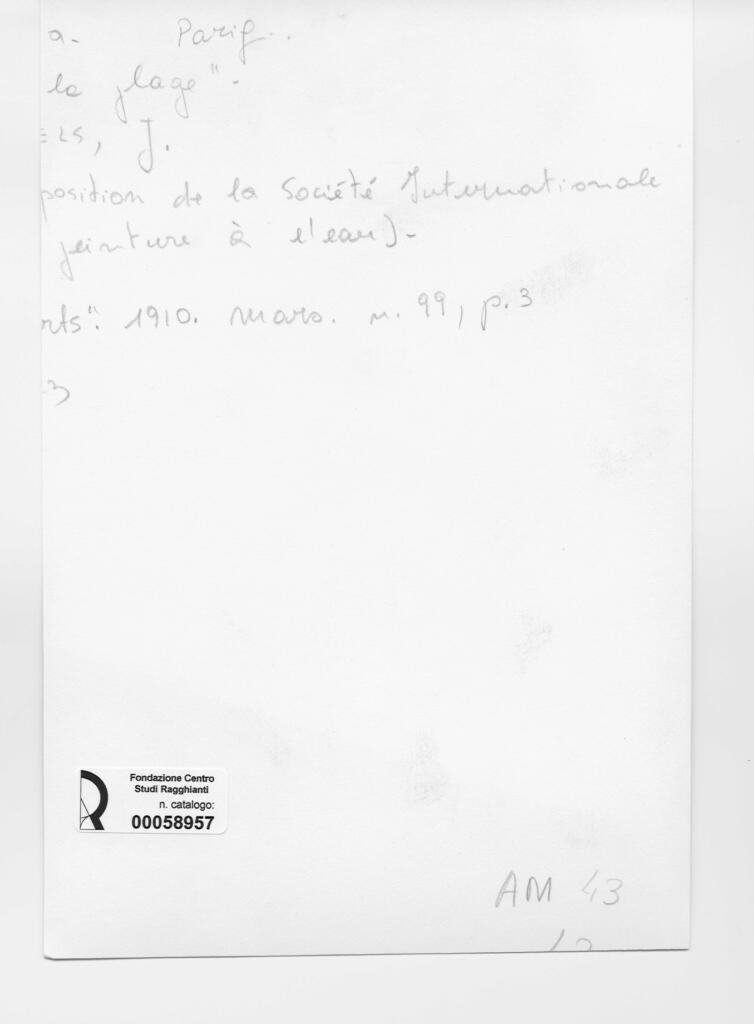 a. Parig..
la plage".
ELS, J.
position de la Société Internationale
peinture à l'eau).
rts". 1910. mars. n. 99, p. 3
3
Fondazione Centro
Studi Ragghianti
n. catalogo:
00058957
AM 43